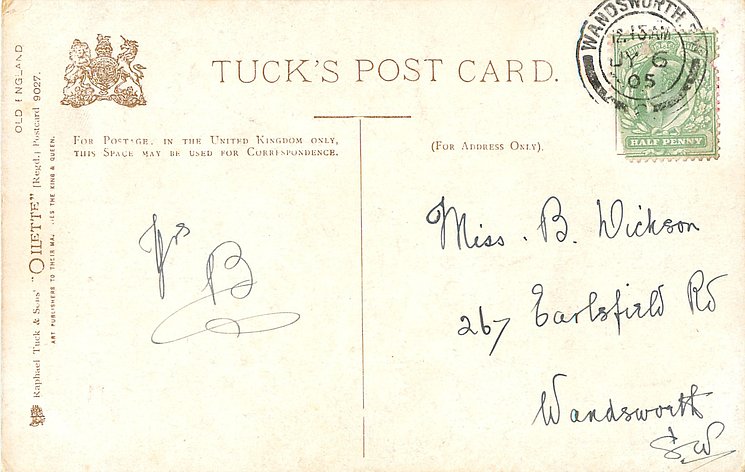 OLD ENGLAND
Raphael Tuck & Sons' "OILETTE" (Regd.) Postcard 9027.
ART PUBLISHERS TO THEIR MA IES THE KING & QUEEN.
TUCK'S POST CARD.
FOR POSTAGE, IN THE UNITED KINGDOM ONLY,
THIS SPACE MAY BE USED FOR CORRESPONDENCE.
(FOR ADDRESS ONLY).
WANDSWORTH
12.15AM
05
HALF PENNY
Yrs
B
Miss. B. Dickson
267 Earlsfield Rd
Wandsworth
S.W